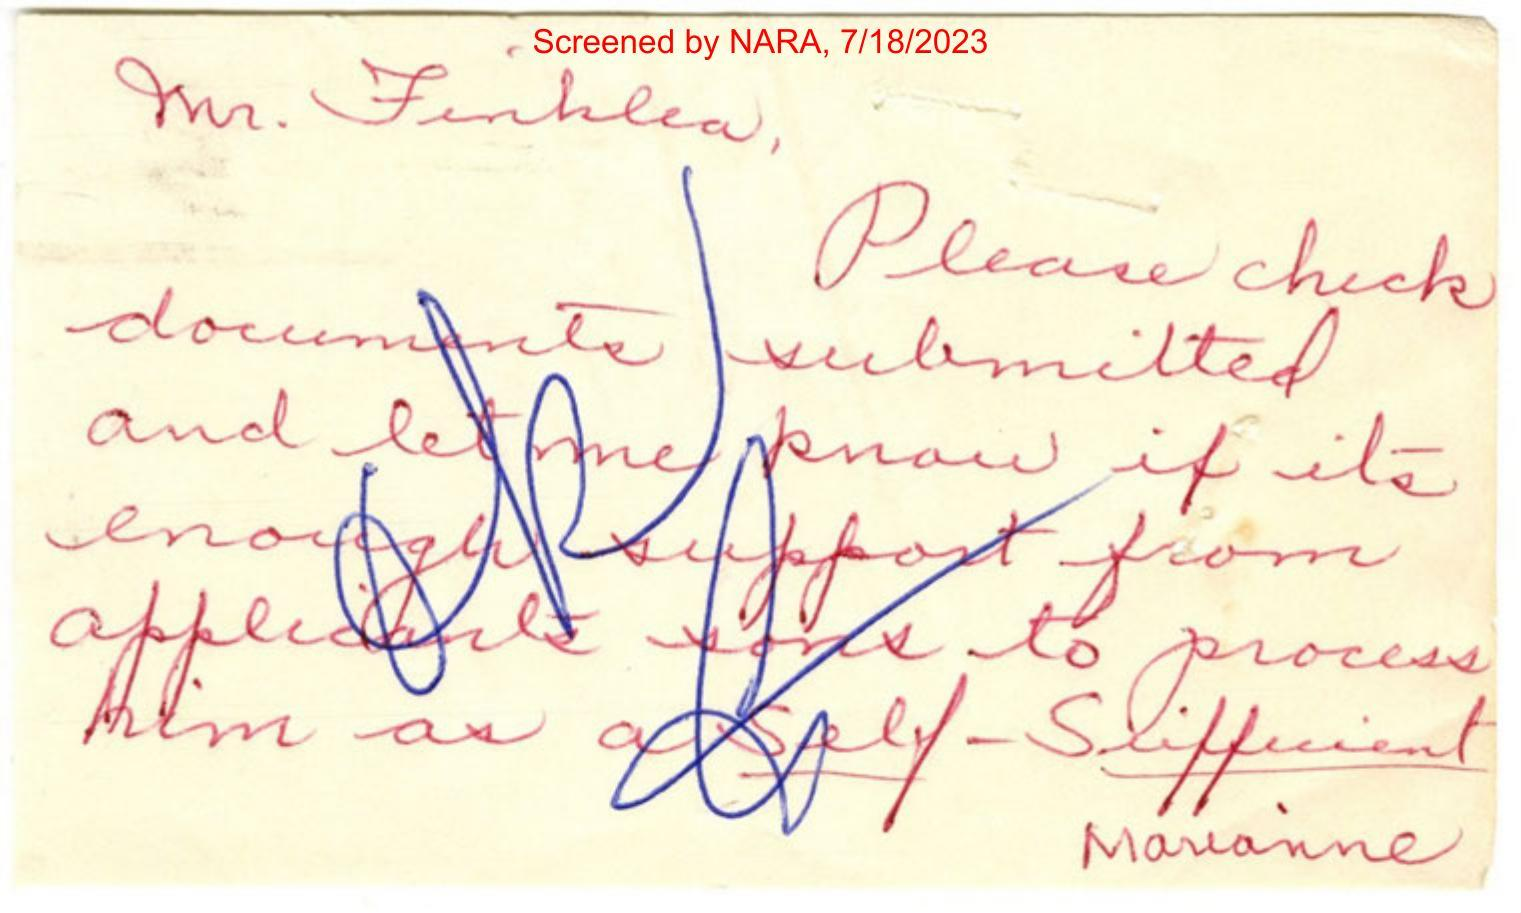 Screened by NARA, 7/18/2023
Mr. Finklea,
Please check
documents submitted
and let me know if its
enough support from
applicants sons to process
him as a Self-Sufficient
Marianne